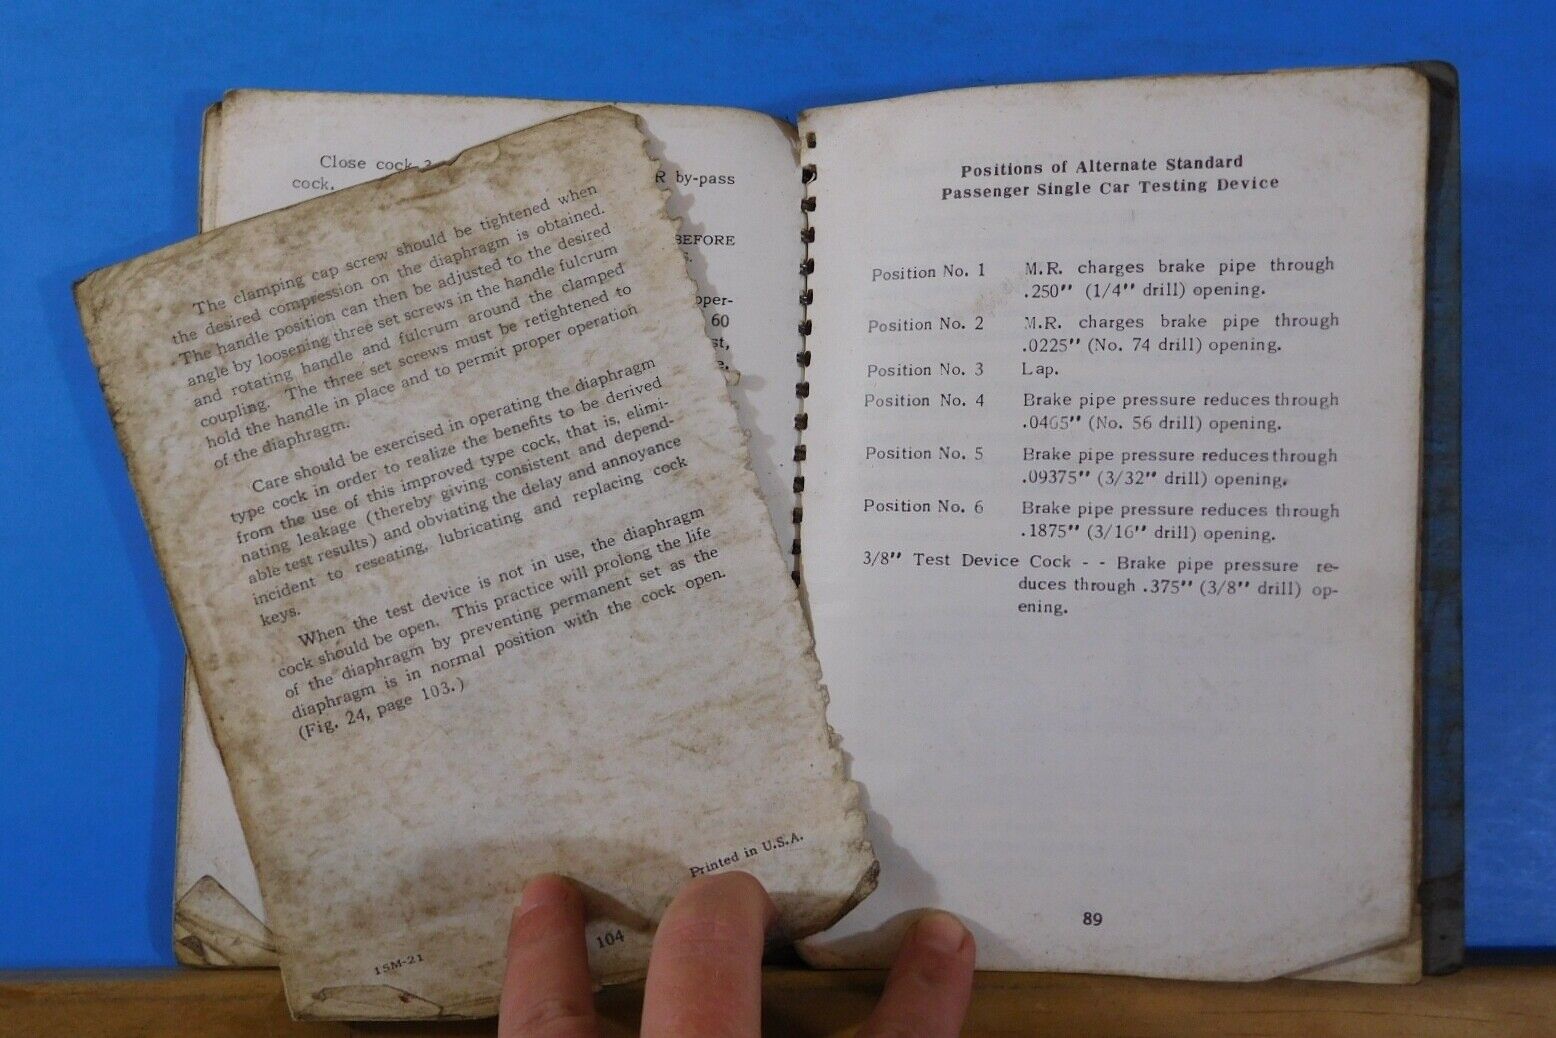 Close cock
cock.
R by-pass
BEFORE
oper-
60
st,
The clamping cap screw should be tightened when
the desired compression on the diaphragm is obtained.
The handle position can then be adjusted to the desired
angle by loosening three set screws in the handle fulcrum
and rotating handle and fulcrum around the clamped
coupling. The three set screws must be retightened to
hold the handle in place and to permit proper operation
of the diaphragm.
Care should be exercised in operating the diaphragm
type cock in order to realize the benefits to be derived
from the use of this improved type cock, that is, elimi-
nating leakage (thereby giving consistent and depend-
able test results) and obviating the delay and annoyance
incident to reseating, lubricating and replacing cock
keys.
When the test device is not in use, the diaphragm
cock should be open. This practice will prolong the life
of the diaphragm by preventing permanent set as the
diaphragm is in normal position with the cock open.
(Fig. 24, page 103.)
Printed in U.S.A.
104
15M-21
Positions of Alternate Standard
Passenger Single Car Testing Device
Position No. 1 M.R. charges brake pipe through
.250" (1/4" drill) opening.
Position No. 2 M.R. charges brake pipe through
.0225" (No. 74 drill) opening.
Position No. 3 Lap.
Position No. 4 Brake pipe pressure reduces through
.0465" (No. 56 drill) opening.
Position No. 5 Brake pipe pressure reduces through
.09375" (3/32" drill) opening.
Position No. 6 Brake pipe pressure reduces through
.1875" (3/16" drill) opening.
3/8" Test Device Cock - - Brake pipe pressure re-
duces through .375" (3/8" drill) op-
ening.
89